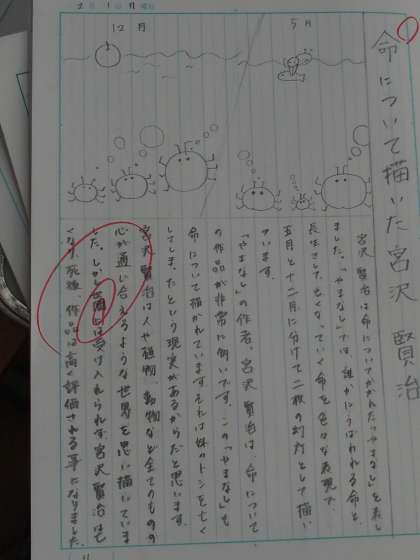 2月1日月曜日
命について描いた宮沢 賢治
5月
12月
宮沢賢治は命についてかかれた「やまなし」を表し
ました。「やまなし」では、誰かにうばわれる命と、
長生きして亡くなっていく命を色々な表現で
五月と十二月に分けて二枚の幻灯として描い
ています。
「やまなし」の作者、宮沢賢治は、命について
の作品が非常に多いです。この「やまなし」も
命について描かれています。それは妹のトシを亡く
してしまったという現実があるからだと思います。
宮沢賢治は人や植物、動物など全てのものの
心が通い合えるような世界を思い描いていま
した。しかし世間には受け入れられず、宮沢賢治は亡
くなり、死後、作品は高く評価される事になりました。